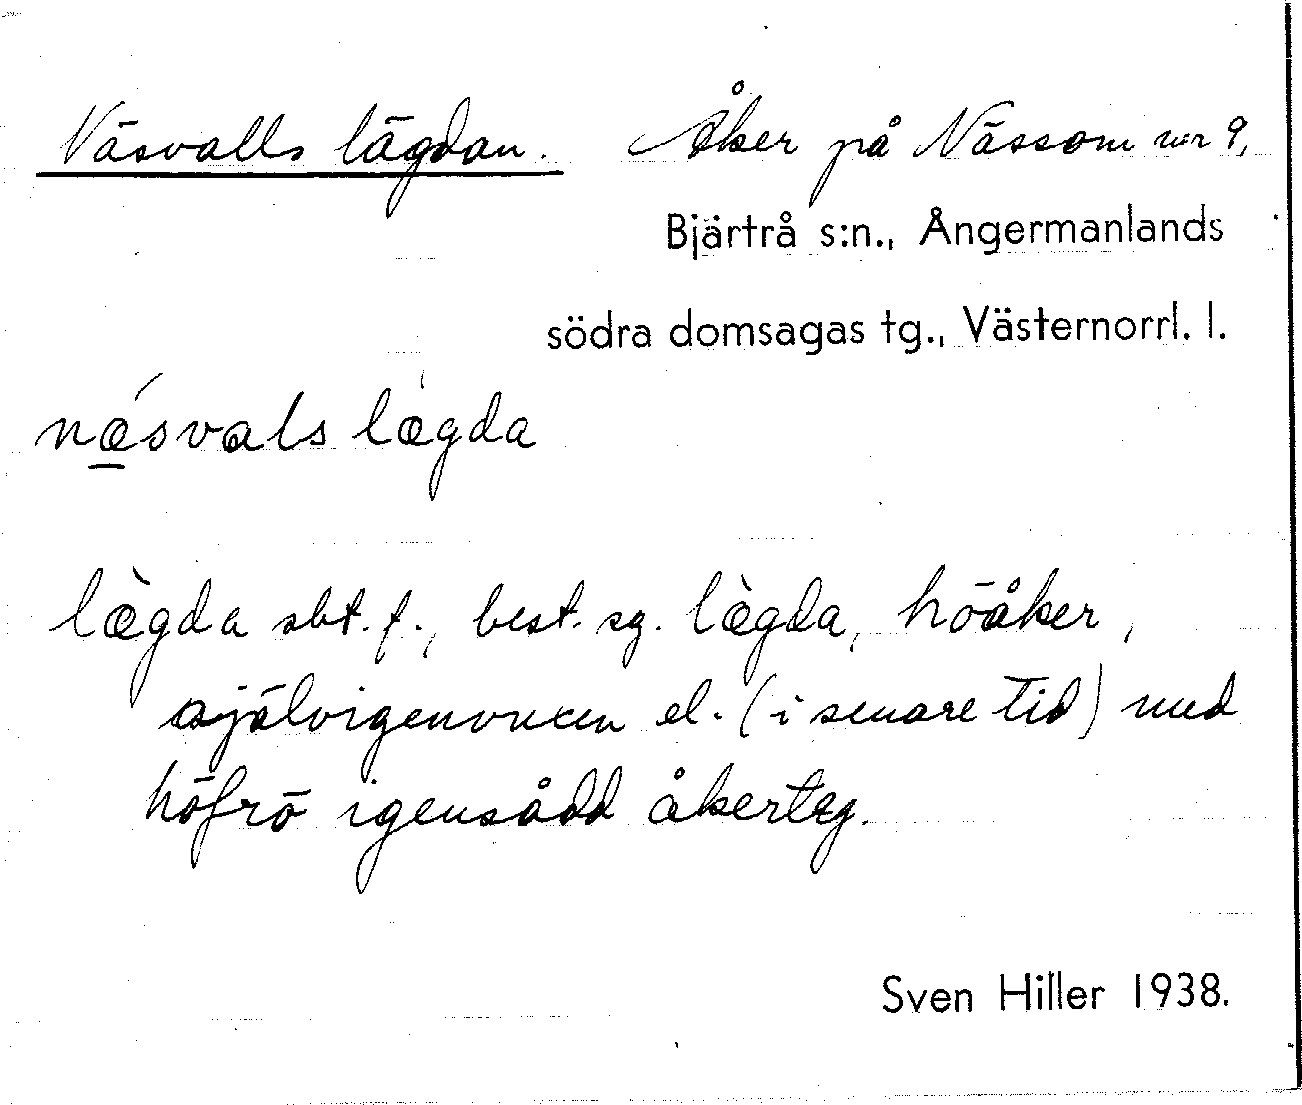 Näsvalls lägdan. Åker på Nässom n:r 9,
Bjärtrå s:n., Ångermanlands
södra domsagas tg., Västernorrl. l.
næ´svals læ̀gda
læ̀gda sbt. f., best. sg. læ̀gda, höåker,
självigenvuxen el. (i senare tid) med
höfrö igensådd åkerteg.
Sven Hiller 1938.